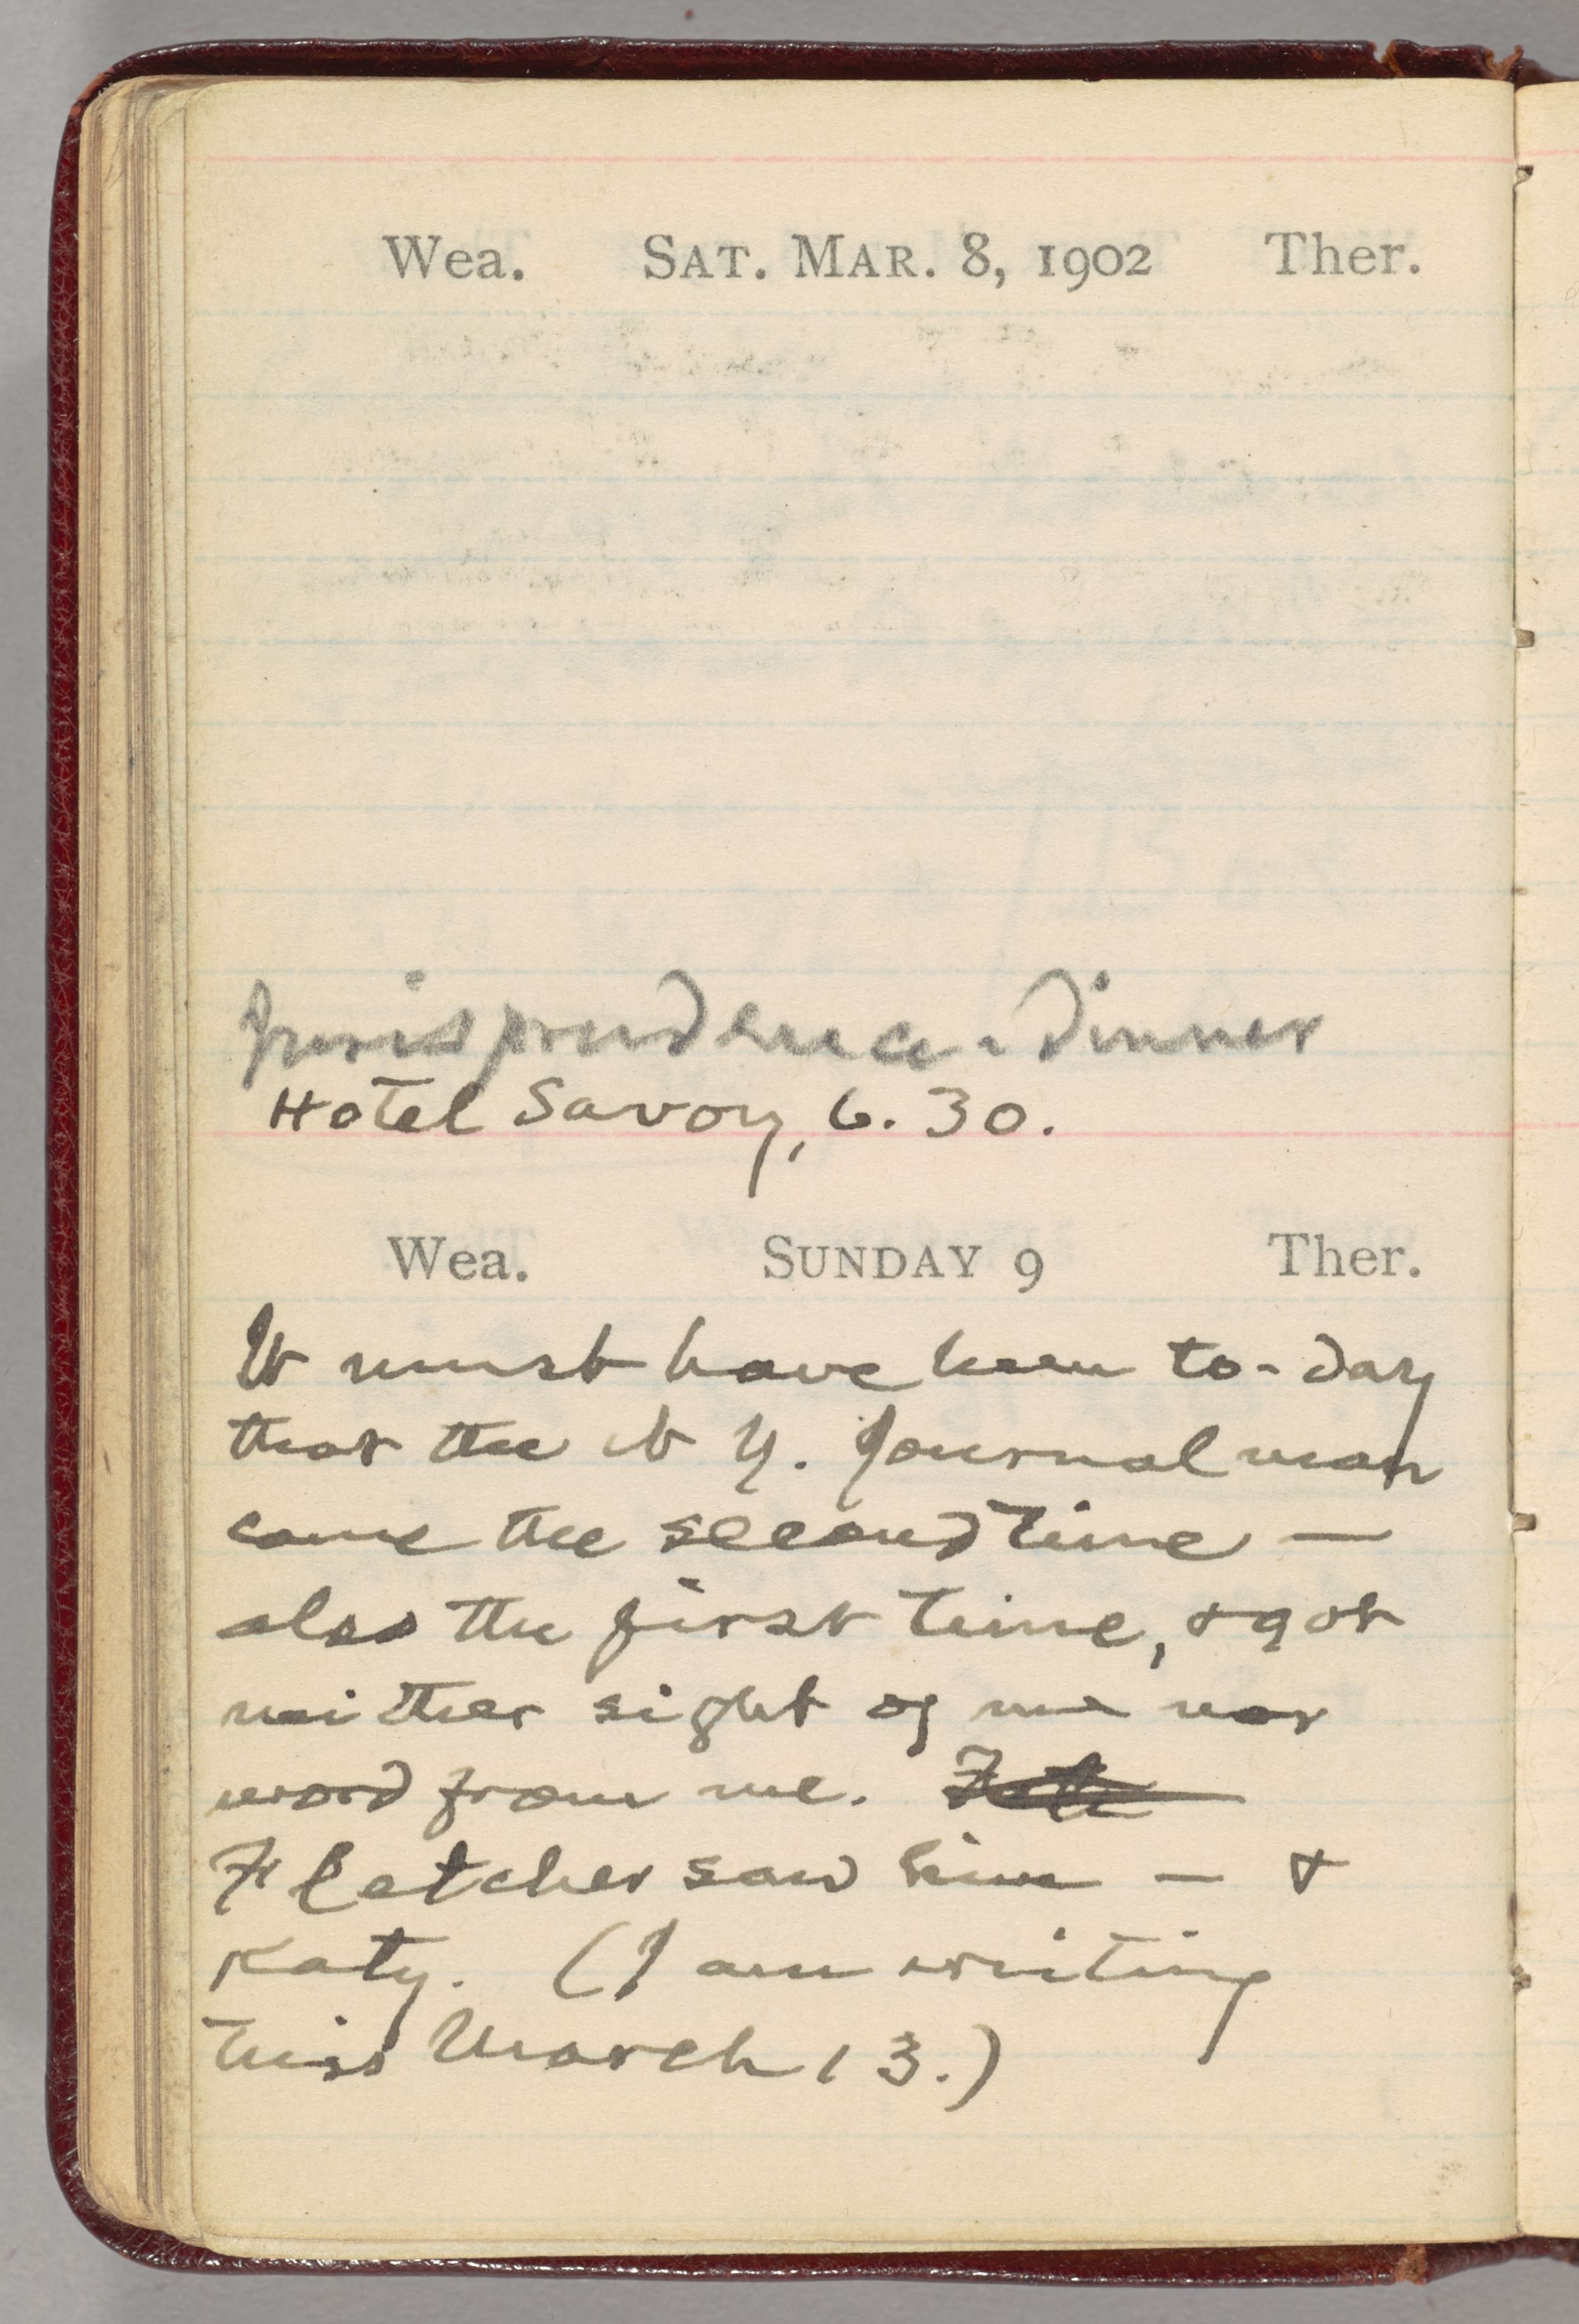 Wea. SAT. MAR. 8, 1902 Ther.
Jurisprudence-dinner
Hotel Savoy, 6.30.
Wea. SUNDAY 9 Ther.
It must have been to-day
that the N Y. Journal man
came the second time —
also the first time, & got
neither sight of me nor
word from me.
Fletcher saw him — &
Katy. (I am writing
this March 13.)